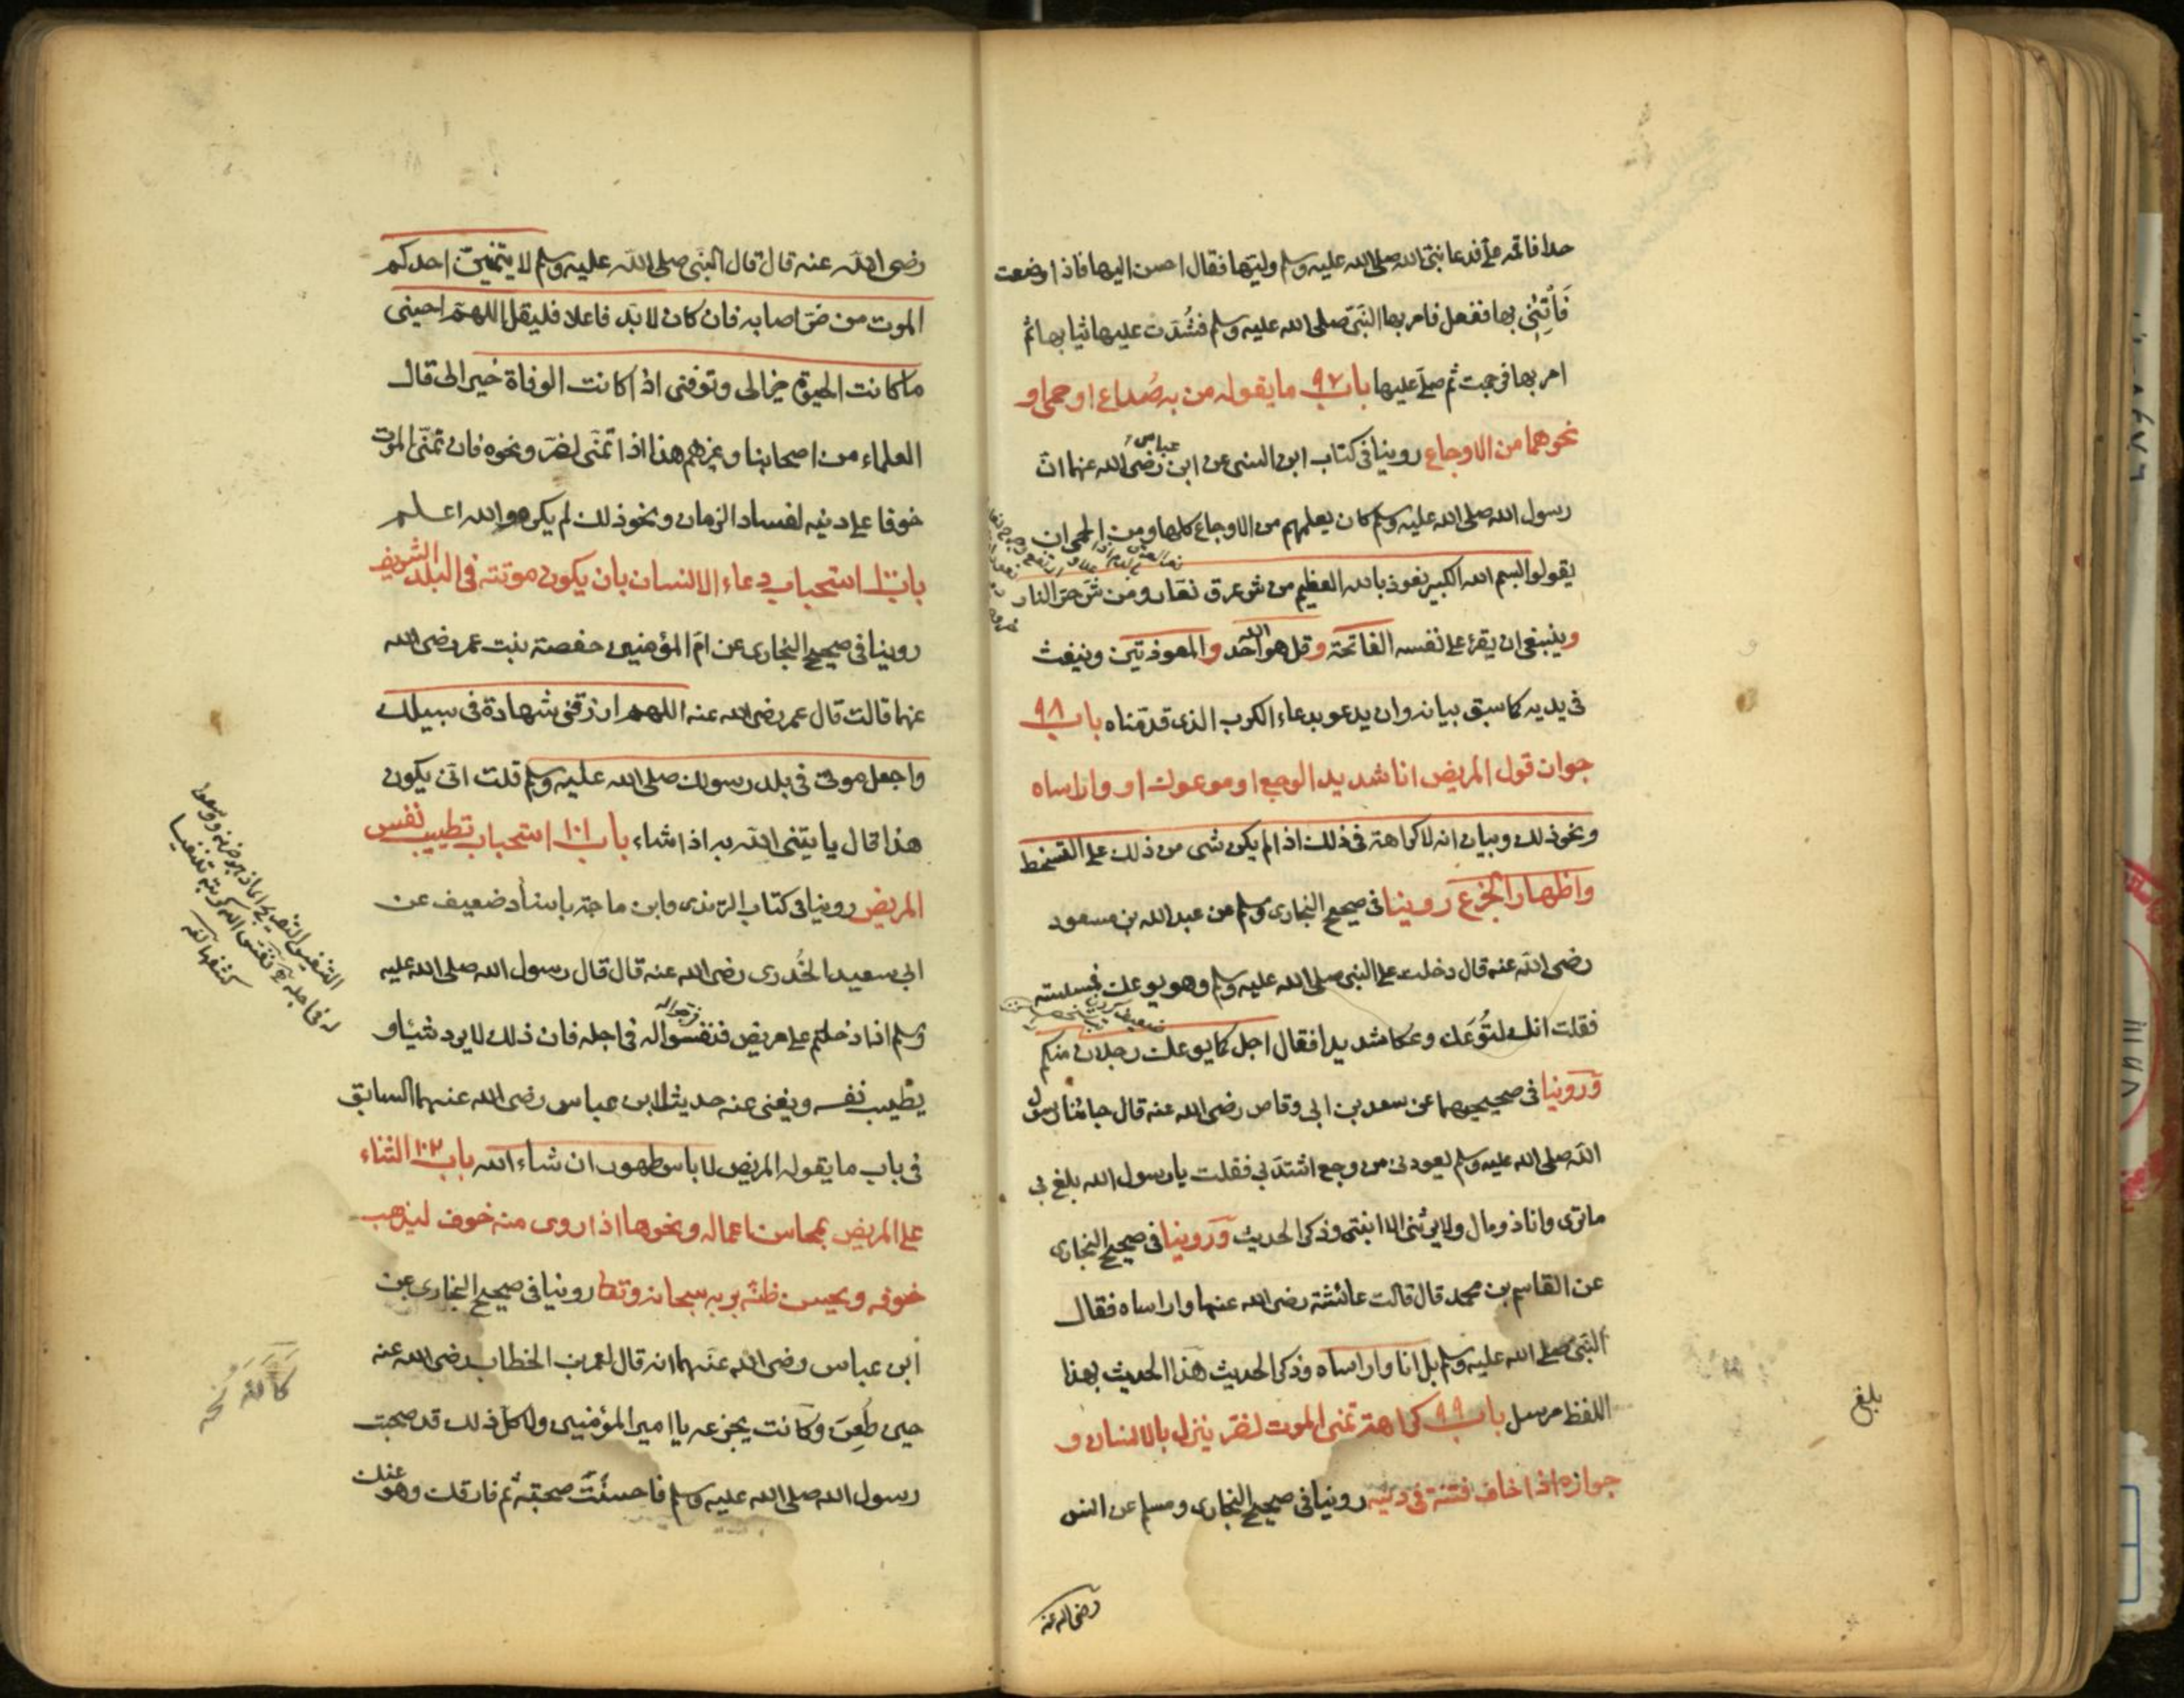 حدا فاقمه علي فدعا نبي الله صلى الله عليه وسلم وليها فقال احسن اليها فاذا وضعت
فَأْتِنِي بها ففعل فامر بها النبي صلى الله عليه وسلم فشُدّت عليها ثيابها ثم
امر بها فرجمت ثم صلى عليها باب ٩٧ ما يقوله من به صُداع او حمى او
نحوهما من الاوجاع روينا في كتاب ابن السني عن ابن عباس رضى الله عنهما ان
رسول الله صلى الله عليه وسلم كان يعلمهم من الاوجاع كلها ومن الحمى ان
يقولوا بسم الله الكبير نعوذ بالله العظيم من شر عرق نعّار ومن شر حر النار
وينبغي ان يقرء على نفسه الفاتحة وقل هو الله احد والمعوذتين وينفث
في يديه كما سبق بيانه وان يدعو بدعاء الكرب الذي قدمناه باب ٩٨
جواز قول المريض انا شديد الوجع او موعوك او واراساه
ونحو ذلك وبيان انه لا كراهة في ذلك اذا لم يكن شي من ذلك على التسخط
واظهار الجزع روينا في صحيح البخاري ومسلم عن عبد الله بن مسعود
رضى الله عنه قال دخلت على النبي صلى الله عليه وسلم وهو يوعك فمسسته
فقلت انك لتُوعَك وعكا شديدا فقال اجل كما يوعك رجلان منكم
وروينا في صحيحيهما عن سعد بن ابي وقاص رضى الله عنه قال جاءنا رسول
الله صلى الله عليه وسلم يعودني من وجع اشتد بي فقلت يا رسول الله بلغ بي
ما ترى وانا ذو مال ولا يرثني الا ابنتي وذكر الحديث وروينا في صحيح البخاري
عن القاسم بن محمد قال قالت عائشة رضى الله عنها واراساه فقال
النبي صلى الله عليه وسلم بل انا واراساه وذكر الحديث هذا الحديث بهذا
اللفظ مرسل باب ٩٩ كراهة تمنى الموت لضر ينزل بالانسان و
جوازه اذا خاف فتنة في دينه روينا في صحيح البخاري ومسلم عن انس
رضى الله عنه
بلغ
رضى الله عنه قال قال النبي صلى الله عليه وسلم لا يتمنين احدكم
الموت من ضر اصابه فان كان لا بد فاعلا فليقل اللهم احيني
ما كانت الحيوة خيرا لي وتوفني اذا كانت الوفاة خيرا لي قال
العلماء من اصحابنا وغيرهم هذا اذا تمنى لضر ونحوه فان تمنى الموت
خوفا على دينه لفساد الزمان ونحو ذلك لم يكره والله اعلم
باب ١٠٠ استحباب دعاء الانسان بان يكون موته في البلد الشريف
روينا في صحيح البخاري عن ام المؤمنين حفصة بنت عمر رضى الله
عنهما قالت قال عمر رضى الله عنه اللهم ارزقني شهادة في سبيلك
واجعل موتي في بلد رسولك صلى الله عليه وسلم قلت انى يكون
هذا قال ياتيني الله به اذا شاء باب ١٠١ استحباب تطييب نفس
المريض روينا في كتاب الترمذي وابن ماجة باسناد ضعيف عن
ابي سعيد الخُدري رضى الله عنه قال قال رسول الله صلى الله عليه
وسلم اذا دخلتم على مريض فنفسوا له في اجله فان ذلك لا يرد شيئا و
يطيب نفسه ويغني عنه حديث ابن عباس رضى الله عنهما السابق
في باب ما يقوله المريض لا باس طهور ان شاء الله باب ١٠٢ الثناء
على المريض بمحاسن اعماله ونحوها اذا روى منه خوف ليذهب
خوفه ويحسن ظنه بربه سبحانه وتعا روينا في صحيح البخاري عن
ابن عباس رضى الله عنهما انه قال لعمر بن الخطاب رضى الله عنه
حين طُعِنَ وكانت يجزعه يا امير المؤمنين ولا كل ذلك قد صحبت
رسول الله صلى الله عليه وسلم فاحسنت صحبته ثم فارقك وهو عنك